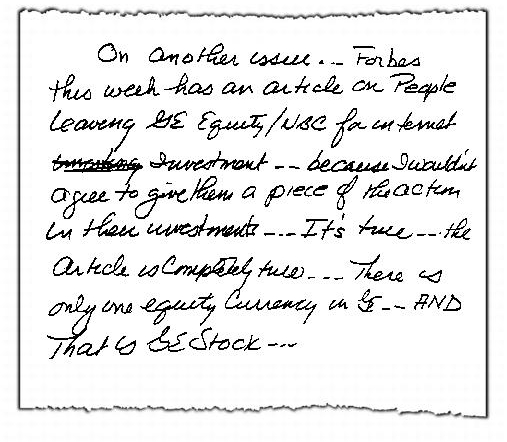 On another issue -- Forbes
this week has an article on People
leaving GE Equity/NBC for internet
Investment -- because I wouldn't
agree to give them a piece of the action
in their investments --- It's true -- the
Article is Completely true --- There is
only one equity Currency in GE -- AND
That is GE Stock ---